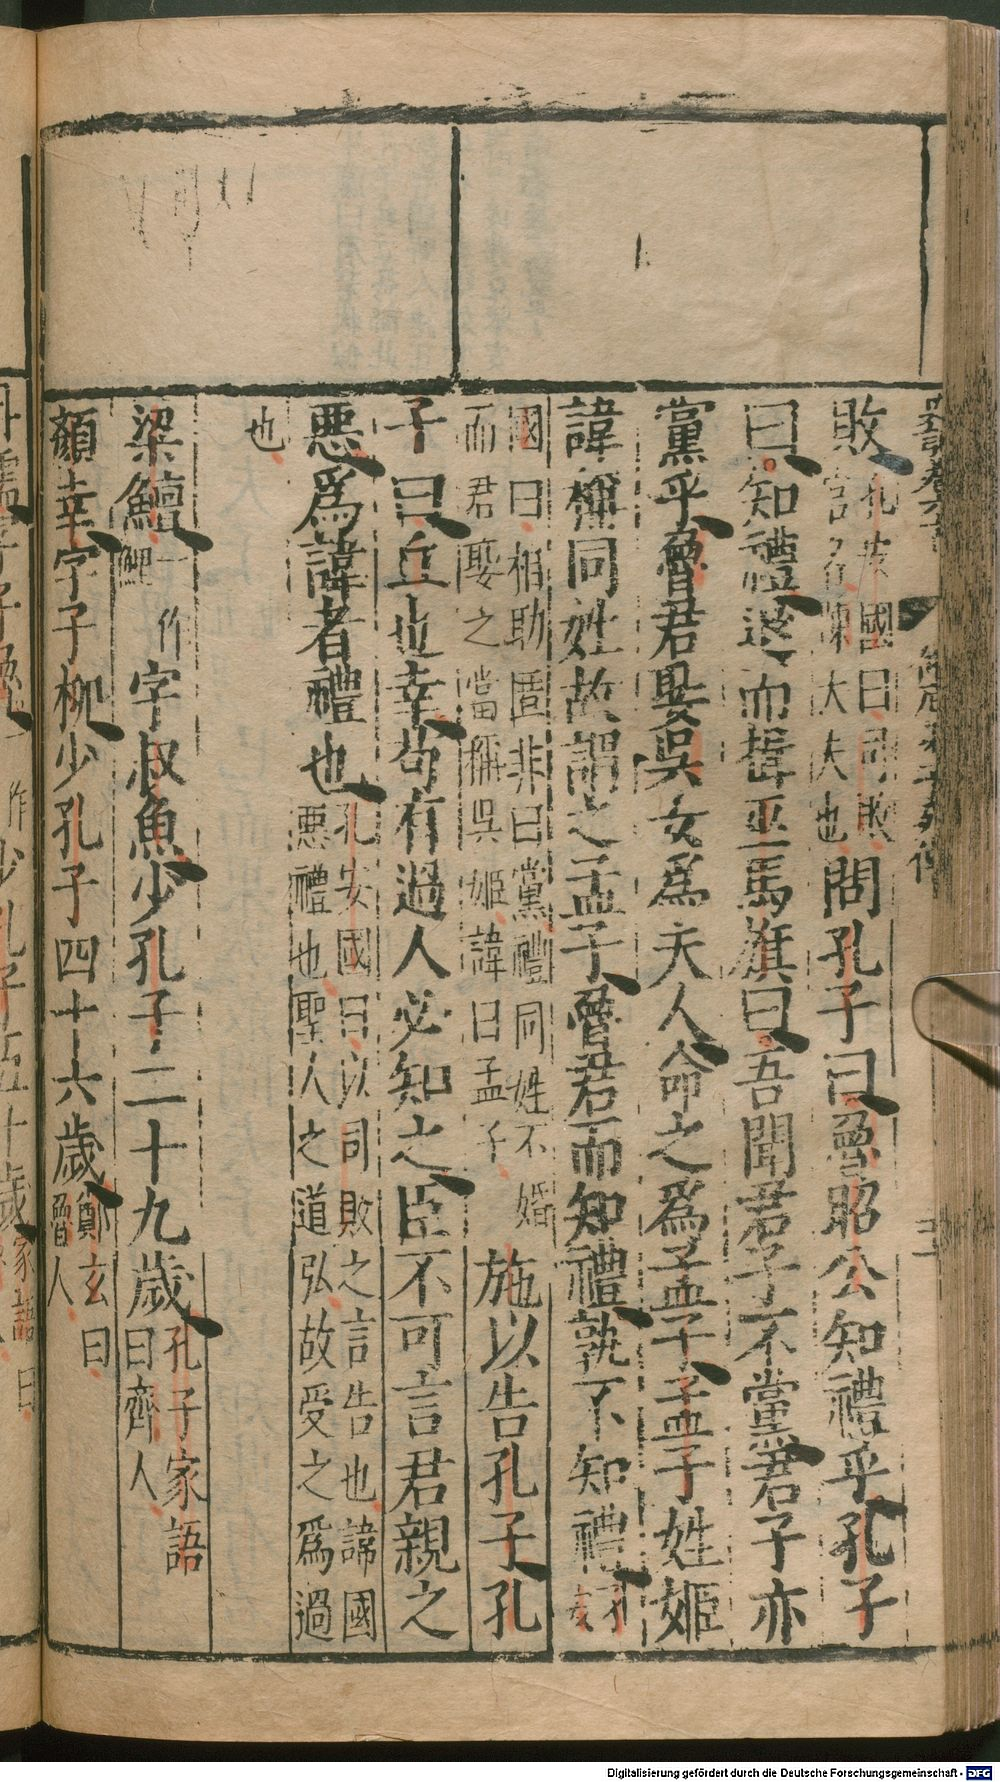 敗孔安國曰司敗官名陳大夫也問孔子曰魯昭公知禮乎孔子
曰知禮退而揖巫馬旗曰吾聞君子不黨君子亦
黨乎魯君娶吳女爲夫人命之爲孟子孟子姓姬
諱稱同姓故謂之孟子魯君而知禮孰不知禮孔安
國曰相助匿非曰黨禮同姓不婚而君娶之當稱吳姬諱曰孟子施以告孔子孔
子曰丘也幸苟有過人必知之臣不可言君親之
惡爲諱者禮也孔安國曰以司敗之言告也諱國惡禮也聖人之道弘故受之爲過
也
梁鱣一作鯉字叔魚少孔子二十九歲孔子家語曰齊人
顏幸字子柳少孔子四十六歲鄭玄曰魯人
冉孺字子魯一作少孔子五十歲家語曰
Digitalisierung gefördert durch die Deutsche Forschungsgemeinschaft - DFG